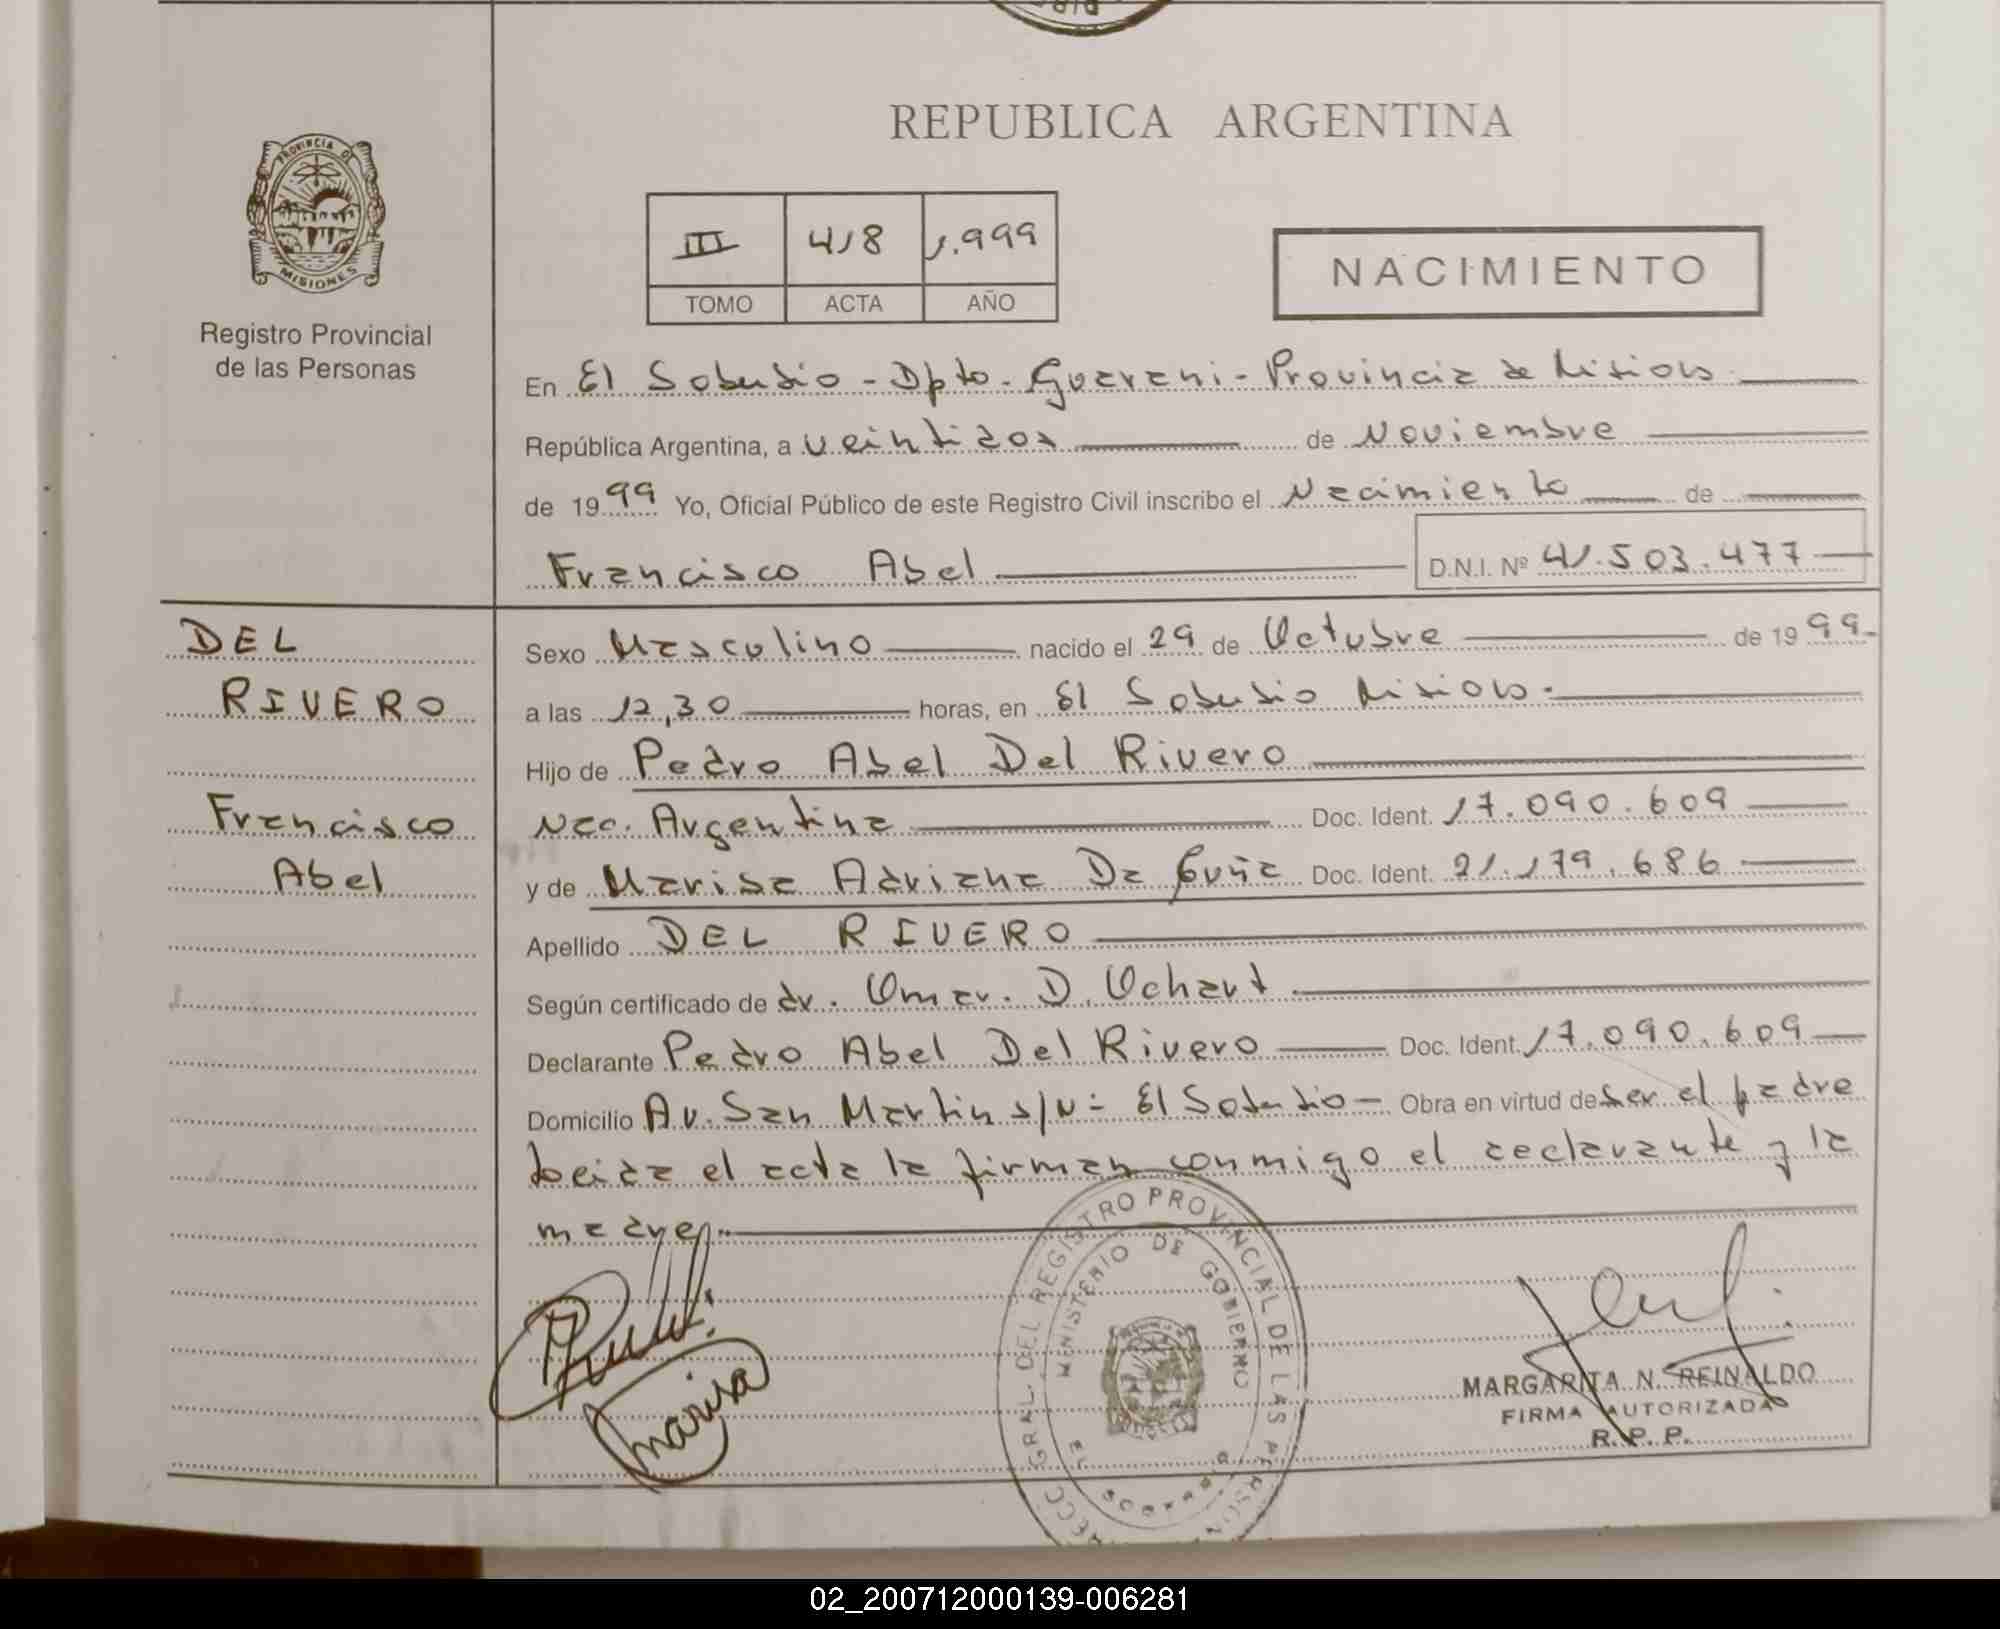 REPUBLICA ARGENTINA
PROVINCIA DE
MISIONES
Registro Provincial
de las Personas
III 418 1.999
TOMO ACTA AÑO
NACIMIENTO
En El Soberbio - Dpto - Guarani - Provincia de Misiones
República Argentina, a veintidos de Noviembre
de 1999 Yo, Oficial Público de este Registro Civil inscribo el Nacimiento de
Francisco Abel D.N.I. Nº 41.503.477
DEL
RIVERO
Francisco
Abel
Sexo Masculino nacido el 29 de Octubre de 1999-
a las 12,30 horas, en El Soberbio Misiones.
Hijo de Pedro Abel Del Rivero
Nac. Argentina Doc. Ident. 17.090.609
y de Marisa Adriana Da Doc. Ident. 21.179.686
Apellido DEL RIVERO
Según certificado de dr. Omar. D. Ochart
Declarante Pedro Abel Del Rivero Doc. Ident. 17.090.609
Domicilio Av. San Martin s/N= El Soberbio - Obra en virtud de ser el padre
Leida el acta la firman conmigo el declarante y la
madre.
marisa
REGISTRO PROVINCIAL DE LAS
MINISTERIO DE GOBIERNO
MARGARITA N. REINALDO
FIRMA AUTORIZADA
R. P. P.
02_200712000139-006281